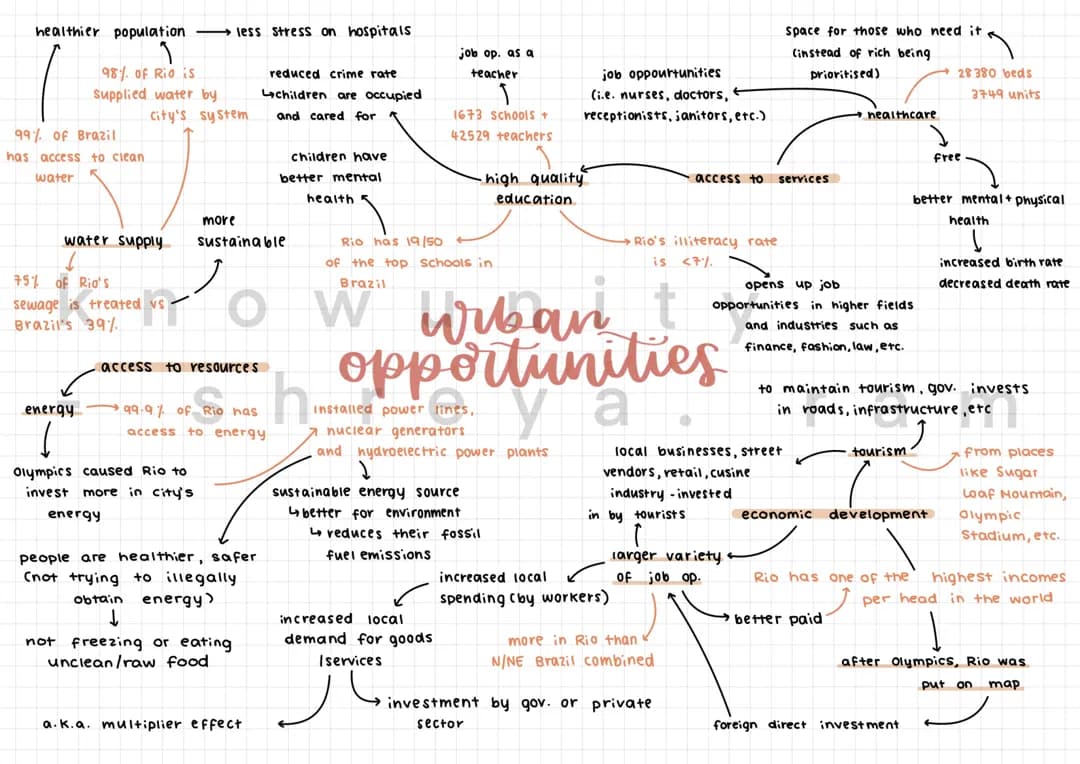 healthier population → less stress on hospitals
98% of Rio is
supplied water by
city's system
99% of Brazil
has access to clean
water
water supply
75% of Rio's
sewage is treated vs
Brazil's 39%
more
sustainable
reduced crime rate
↳children are occupied
and cared for
children have
better mental
health
job op. as a
teacher
1673 schools +
42529 teachers
high quality
education
Rio has 19/50
of the top schools in
Brazil
Rio's illiteracy rate
is <7%
opens up job
opportunities in higher fields
and industries such as
finance, fashion, law, etc.
access to services
job oppourtunities
(i.e. nurses, doctors,
receptionists, janitors, etc.)
space for those who need it
(instead of rich being
prioritised)
28380 beds
3749 units
healthcare
free
better mental + physical
health
increased birth rate
decreased death rate
knowunity
- shreya. ram
urban
opportunities
access to resources
energy
99.9% of Rio has
access to energy
Olympics caused Rio to
invest more in city's
energy
installed power lines,
nuclear generators
and hydroelectric power plants
sustainable energy source
↳better for environment
↳ reduces their fossil
fuel emissions
people are healthier, safer
(not trying to illegally
obtain energy)
not freezing or eating
unclean/raw food
economic development
tourism
to maintain tourism, gov. invests
in roads, infrastructure, etc
from places
like Sugar
Loaf Mountain,
Olympic
Stadium, etc.
local businesses, street
vendors, retail, cusine
industry - invested
in by tourists
larger variety
of job op.
increased local
spending (by workers)
increased local
demand for goods
/services
a.k.a. multiplier effect
investment by gov. or private
sector
more in Rio than
N/NE Brazil combined
better paid
Rio has one of the highest incomes
per head in the world
after Olympics, Rio was
put on map
foreign direct investment